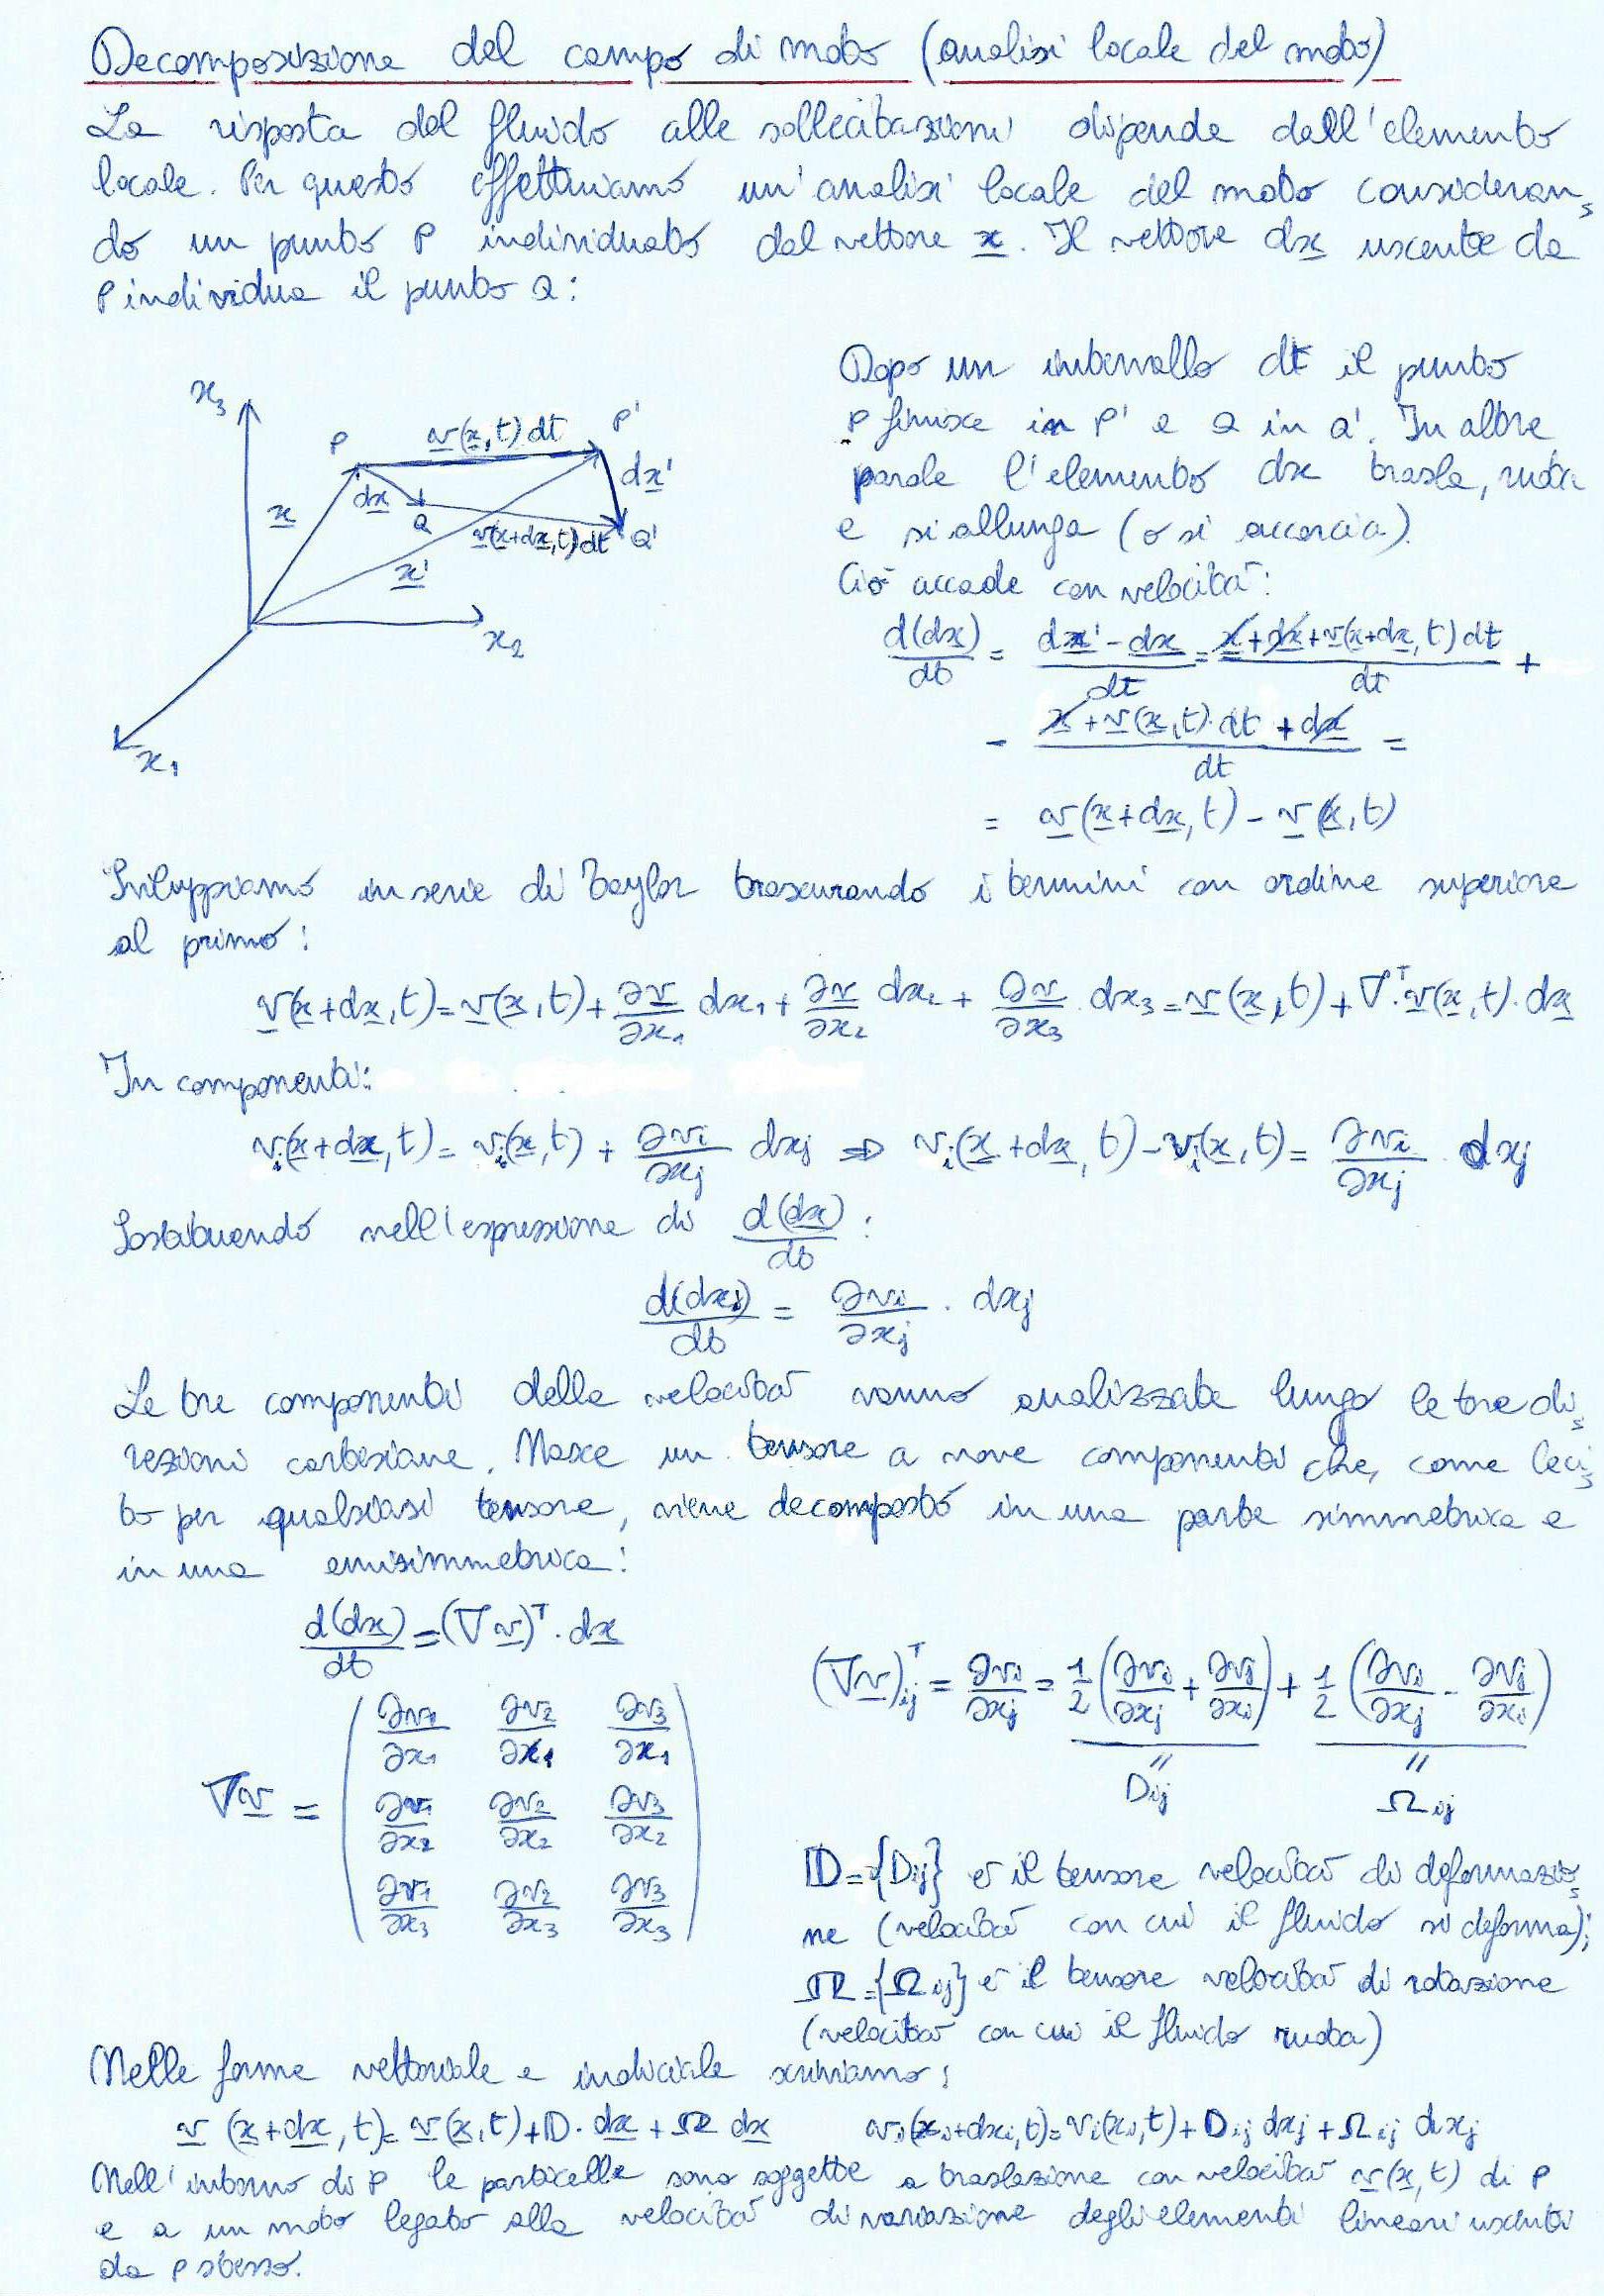 Decomposizione del campo di moto (analisi locale del moto)
La risposta del fluido alle sollecitazioni dipende dall'elemento
locale. Per questo effettuiamo un'analisi locale del moto consideran-
do un punto P individuato dal vettore x. Il vettore dx uscente da
P individua il punto Q:
Dopo un intervallo dt il punto
P finisce in P' e Q in Q'. In altre
parole l'elemento dx trasla, ruota
e si allunga (o si accorcia).
Ciò accade con velocità:
x₃
P
v(x,t) dt
P'
dx
dx'
x
Q
v(x+dx,t) dt
Q'
x'
x₂
x₁
d(dx)/dt = (dx' - dx)/dt = (x + dx + v(x+dx,t) dt)/dt +
- (x + v(x,t)·dt + dx)/dt =
= v(x+dx,t) - v(x,t)
Sviluppiamo in serie di Taylor trascurando i termini con ordine superiore
al primo:
v(x+dx,t) = v(x,t) + ∂v/∂x₁ dx₁ + ∂v/∂x₂ dx₂ + ∂v/∂x₃ · dx₃ = v(x,t) + ∇ᵀ·v(x,t)·dx
In componenti:
vᵢ(x+dx,t) = vᵢ(x,t) + ∂vᵢ/∂xⱼ dxⱼ ⇒ vᵢ(x+dx,t) - vᵢ(x,t) = ∂vᵢ/∂xⱼ · dxⱼ
Sostituendo nell'espressione di d(dx)/dt :
d(dxᵢ)/dt = ∂vᵢ/∂xⱼ · dxⱼ
Le tre componenti della velocità vanno analizzate lungo le tre di-
rezioni cartesiane. Nasce un tensore a nove componenti che, come leci-
to per qualsiasi tensore, viene decomposto in una parte simmetrica e
in una emisimmetrica:
d(dx)/dt = (∇v)ᵀ · dx
∇v =
∂v₁/∂x₁ ∂v₂/∂x₁ ∂v₃/∂x₁
∂v₁/∂x₂ ∂v₂/∂x₂ ∂v₃/∂x₂
∂v₁/∂x₃ ∂v₂/∂x₃ ∂v₃/∂x₃
(∇v)ᵀᵢⱼ = ∂vᵢ/∂xⱼ = 1/2 (∂vᵢ/∂xⱼ + ∂vⱼ/∂xᵢ) + 1/2 (∂vᵢ/∂xⱼ - ∂vⱼ/∂xᵢ)
= Dᵢⱼ = Ωᵢⱼ
𝔻 = {Dᵢⱼ} è il tensore velocità di deformazio-
ne (velocità con cui il fluido si deforma);
Ω = {Ωᵢⱼ} è il tensore velocità di rotazione
(velocità con cui il fluido ruota)
Nelle forme vettoriale e indiciale scriviamo:
v (x+dx,t) = v(x,t) + 𝔻·dx + Ω dx vᵢ(xᵢ+dxᵢ,t) = vᵢ(xᵢ,t) + Dᵢⱼ dxⱼ + Ωᵢⱼ dxⱼ
Nell'intorno di P le particelle sono soggette a traslazione con velocità v(x,t) di P
e a un moto legato alla velocità di variazione degli elementi lineari uscenti
da P stesso.